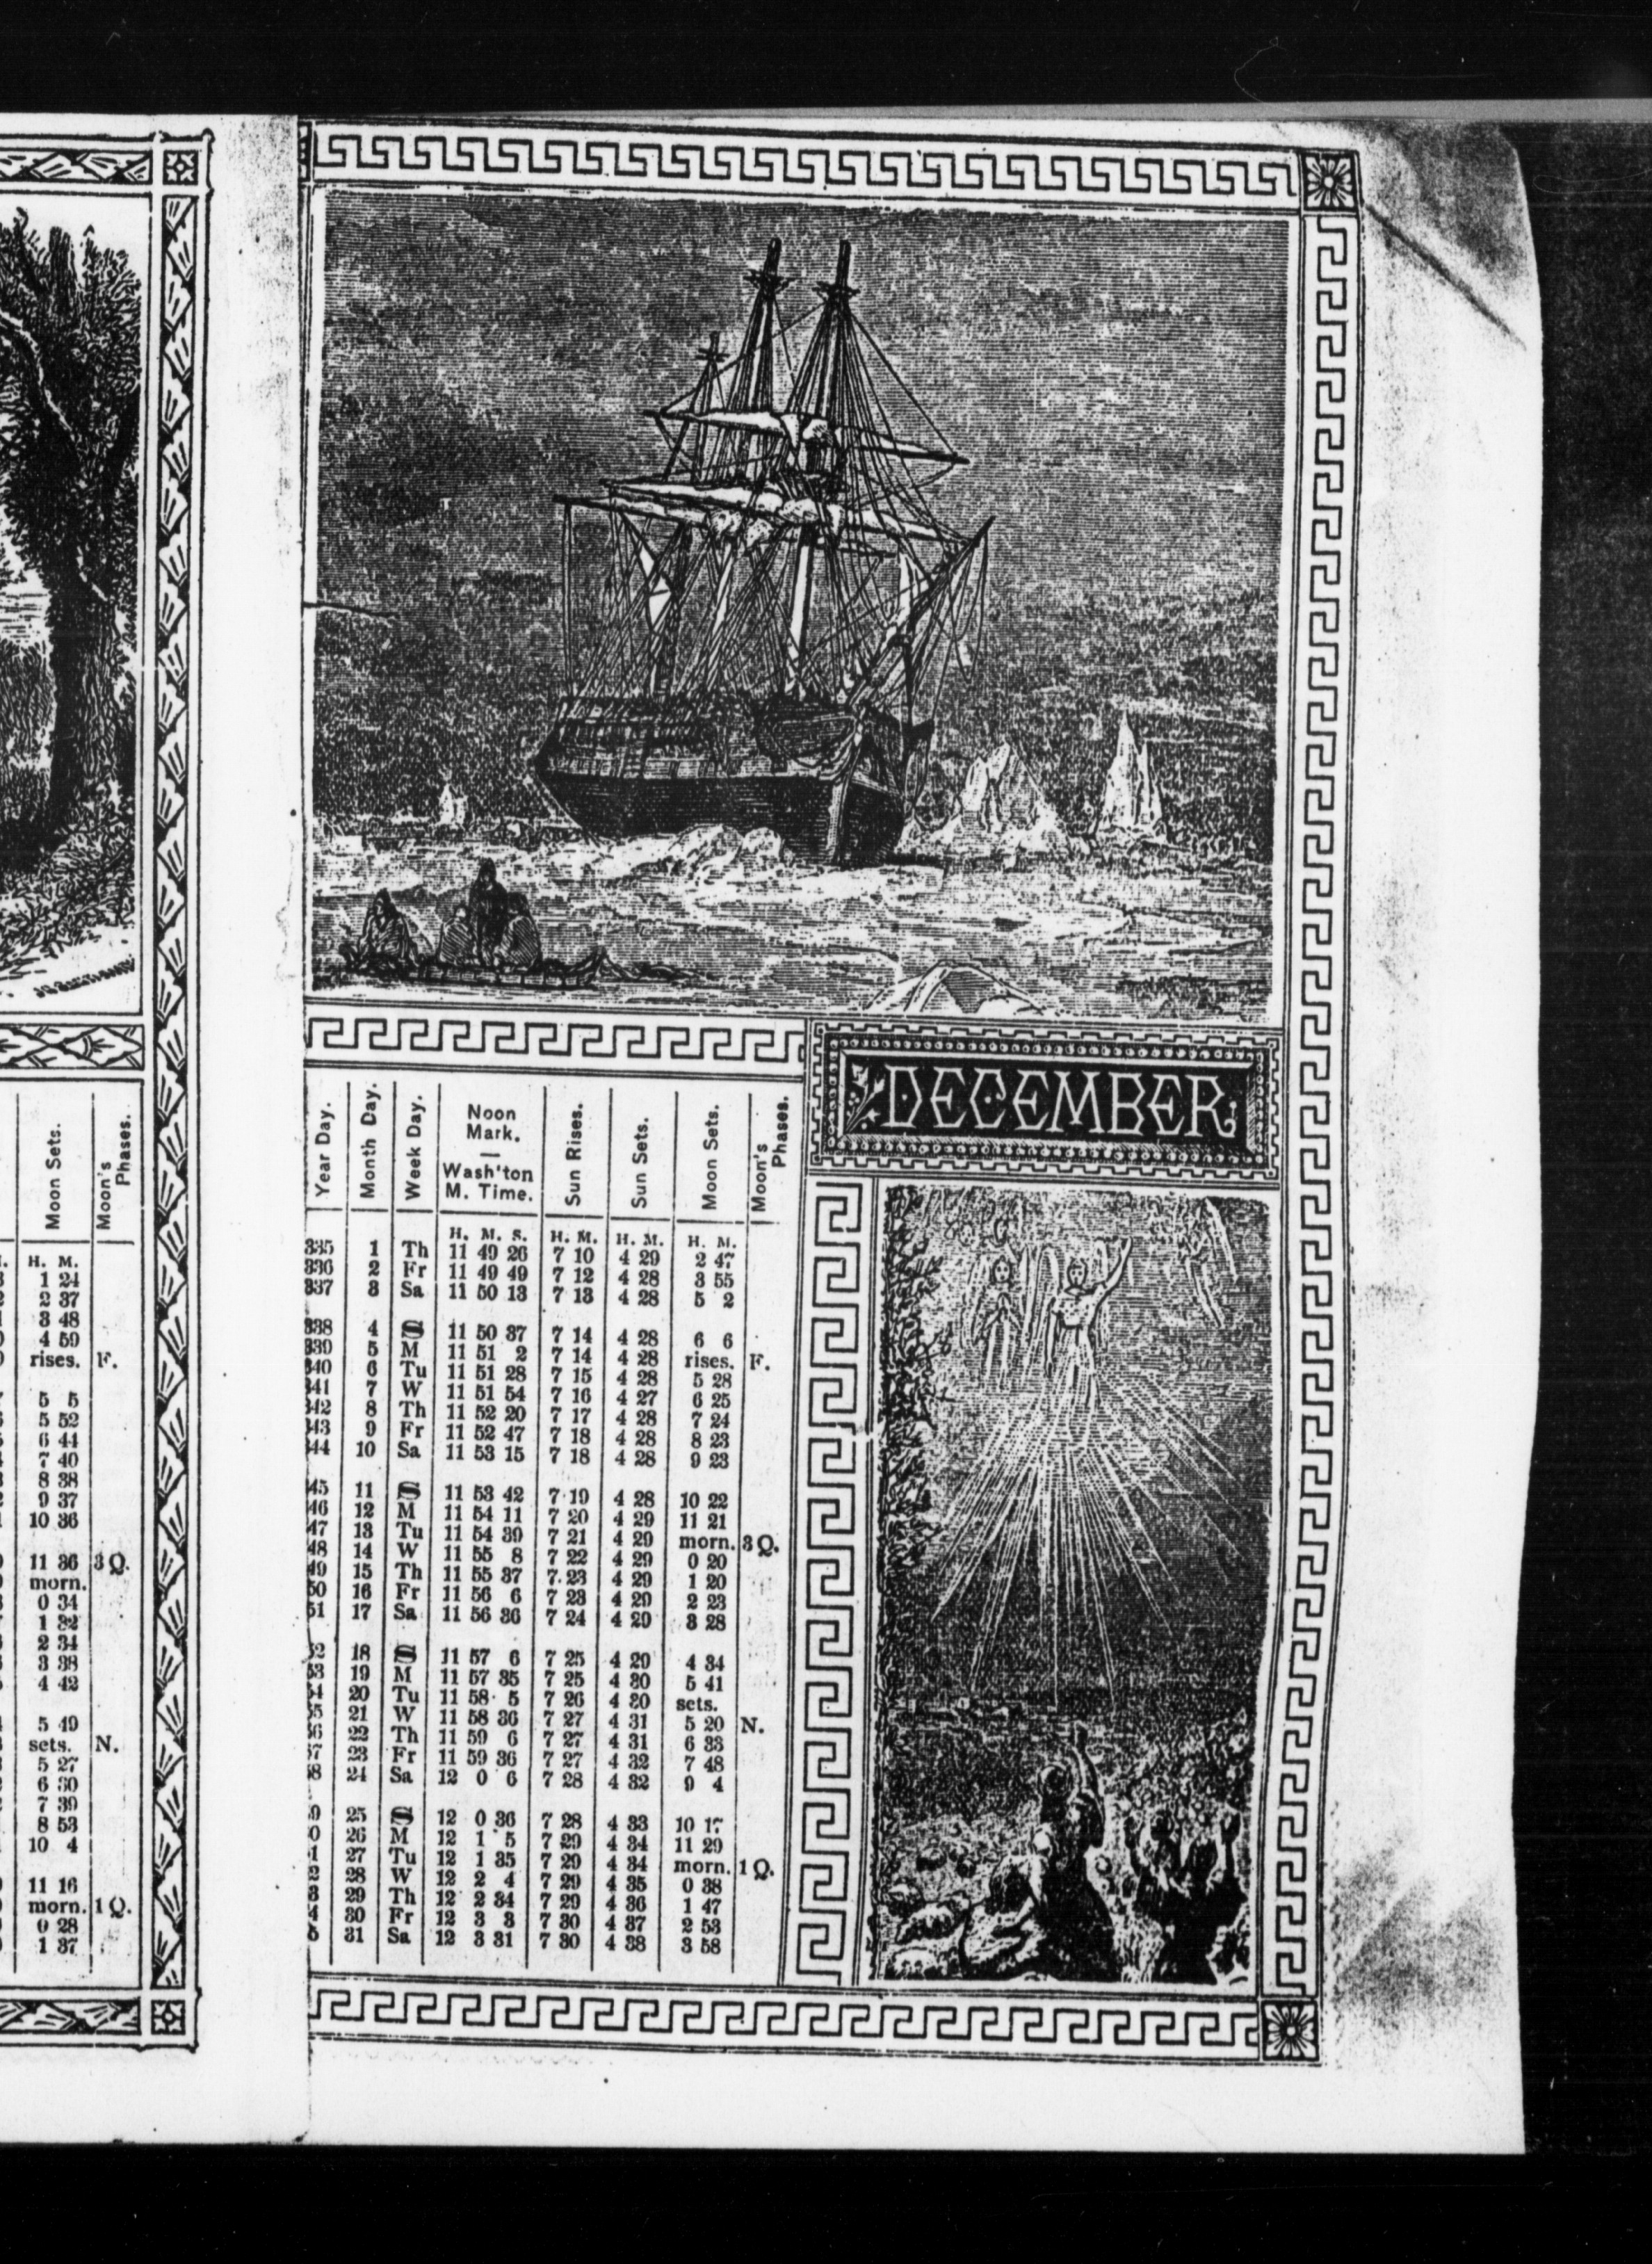 Moon Sets.
Moon's Phases.
H. M.
1 24
2 37
3 48
4 59
rises. F.
5 5
5 52
6 44
7 40
8 38
9 37
10 36
11 36 3 Q.
morn.
0 34
1 32
2 34
3 38
4 42
5 49
sets. N.
5 27
6 30
7 39
8 53
10 4
11 16
morn. 1 Q.
0 28
1 37
DECEMBER.
Year Day. Month Day. Week Day. Noon Mark. — Wash'ton M. Time. Sun Rises. Sun Sets. Moon Sets. Moon's Phases.
H. M. S. H. M. H. M. H. M.
335 1 Th 11 49 26 7 10 4 29 2 47
336 2 Fr 11 49 49 7 12 4 28 3 55
337 3 Sa 11 50 13 7 13 4 28 5 2
338 4 S 11 50 37 7 14 4 28 6 6
339 5 M 11 51 2 7 14 4 28 rises. F.
340 6 Tu 11 51 28 7 15 4 28 5 28
341 7 W 11 51 54 7 16 4 27 6 25
342 8 Th 11 52 20 7 17 4 28 7 24
343 9 Fr 11 52 47 7 18 4 28 8 23
344 10 Sa 11 53 15 7 18 4 28 9 23
45 11 S 11 53 42 7 19 4 28 10 22
46 12 M 11 54 11 7 20 4 29 11 21
47 13 Tu 11 54 39 7 21 4 29 morn. 3 Q.
48 14 W 11 55 8 7 22 4 29 0 20
49 15 Th 11 55 37 7 23 4 29 1 20
50 16 Fr 11 56 6 7 23 4 29 2 23
51 17 Sa 11 56 36 7 24 4 29 3 28
52 18 S 11 57 6 7 25 4 29 4 34
53 19 M 11 57 35 7 25 4 30 5 41
54 20 Tu 11 58 5 7 26 4 30 sets.
55 21 W 11 58 36 7 27 4 31 5 20 N.
56 22 Th 11 59 6 7 27 4 31 6 33
57 23 Fr 11 59 36 7 27 4 32 7 48
58 24 Sa 12 0 6 7 28 4 32 9 4
9 25 S 12 0 36 7 28 4 33 10 17
0 26 M 12 1 5 7 29 4 34 11 29
1 27 Tu 12 1 35 7 29 4 34 morn. 1 Q.
2 28 W 12 2 4 7 29 4 35 0 38
3 29 Th 12 2 34 7 29 4 36 1 47
4 30 Fr 12 3 3 7 30 4 37 2 53
5 31 Sa 12 3 31 7 30 4 38 3 58